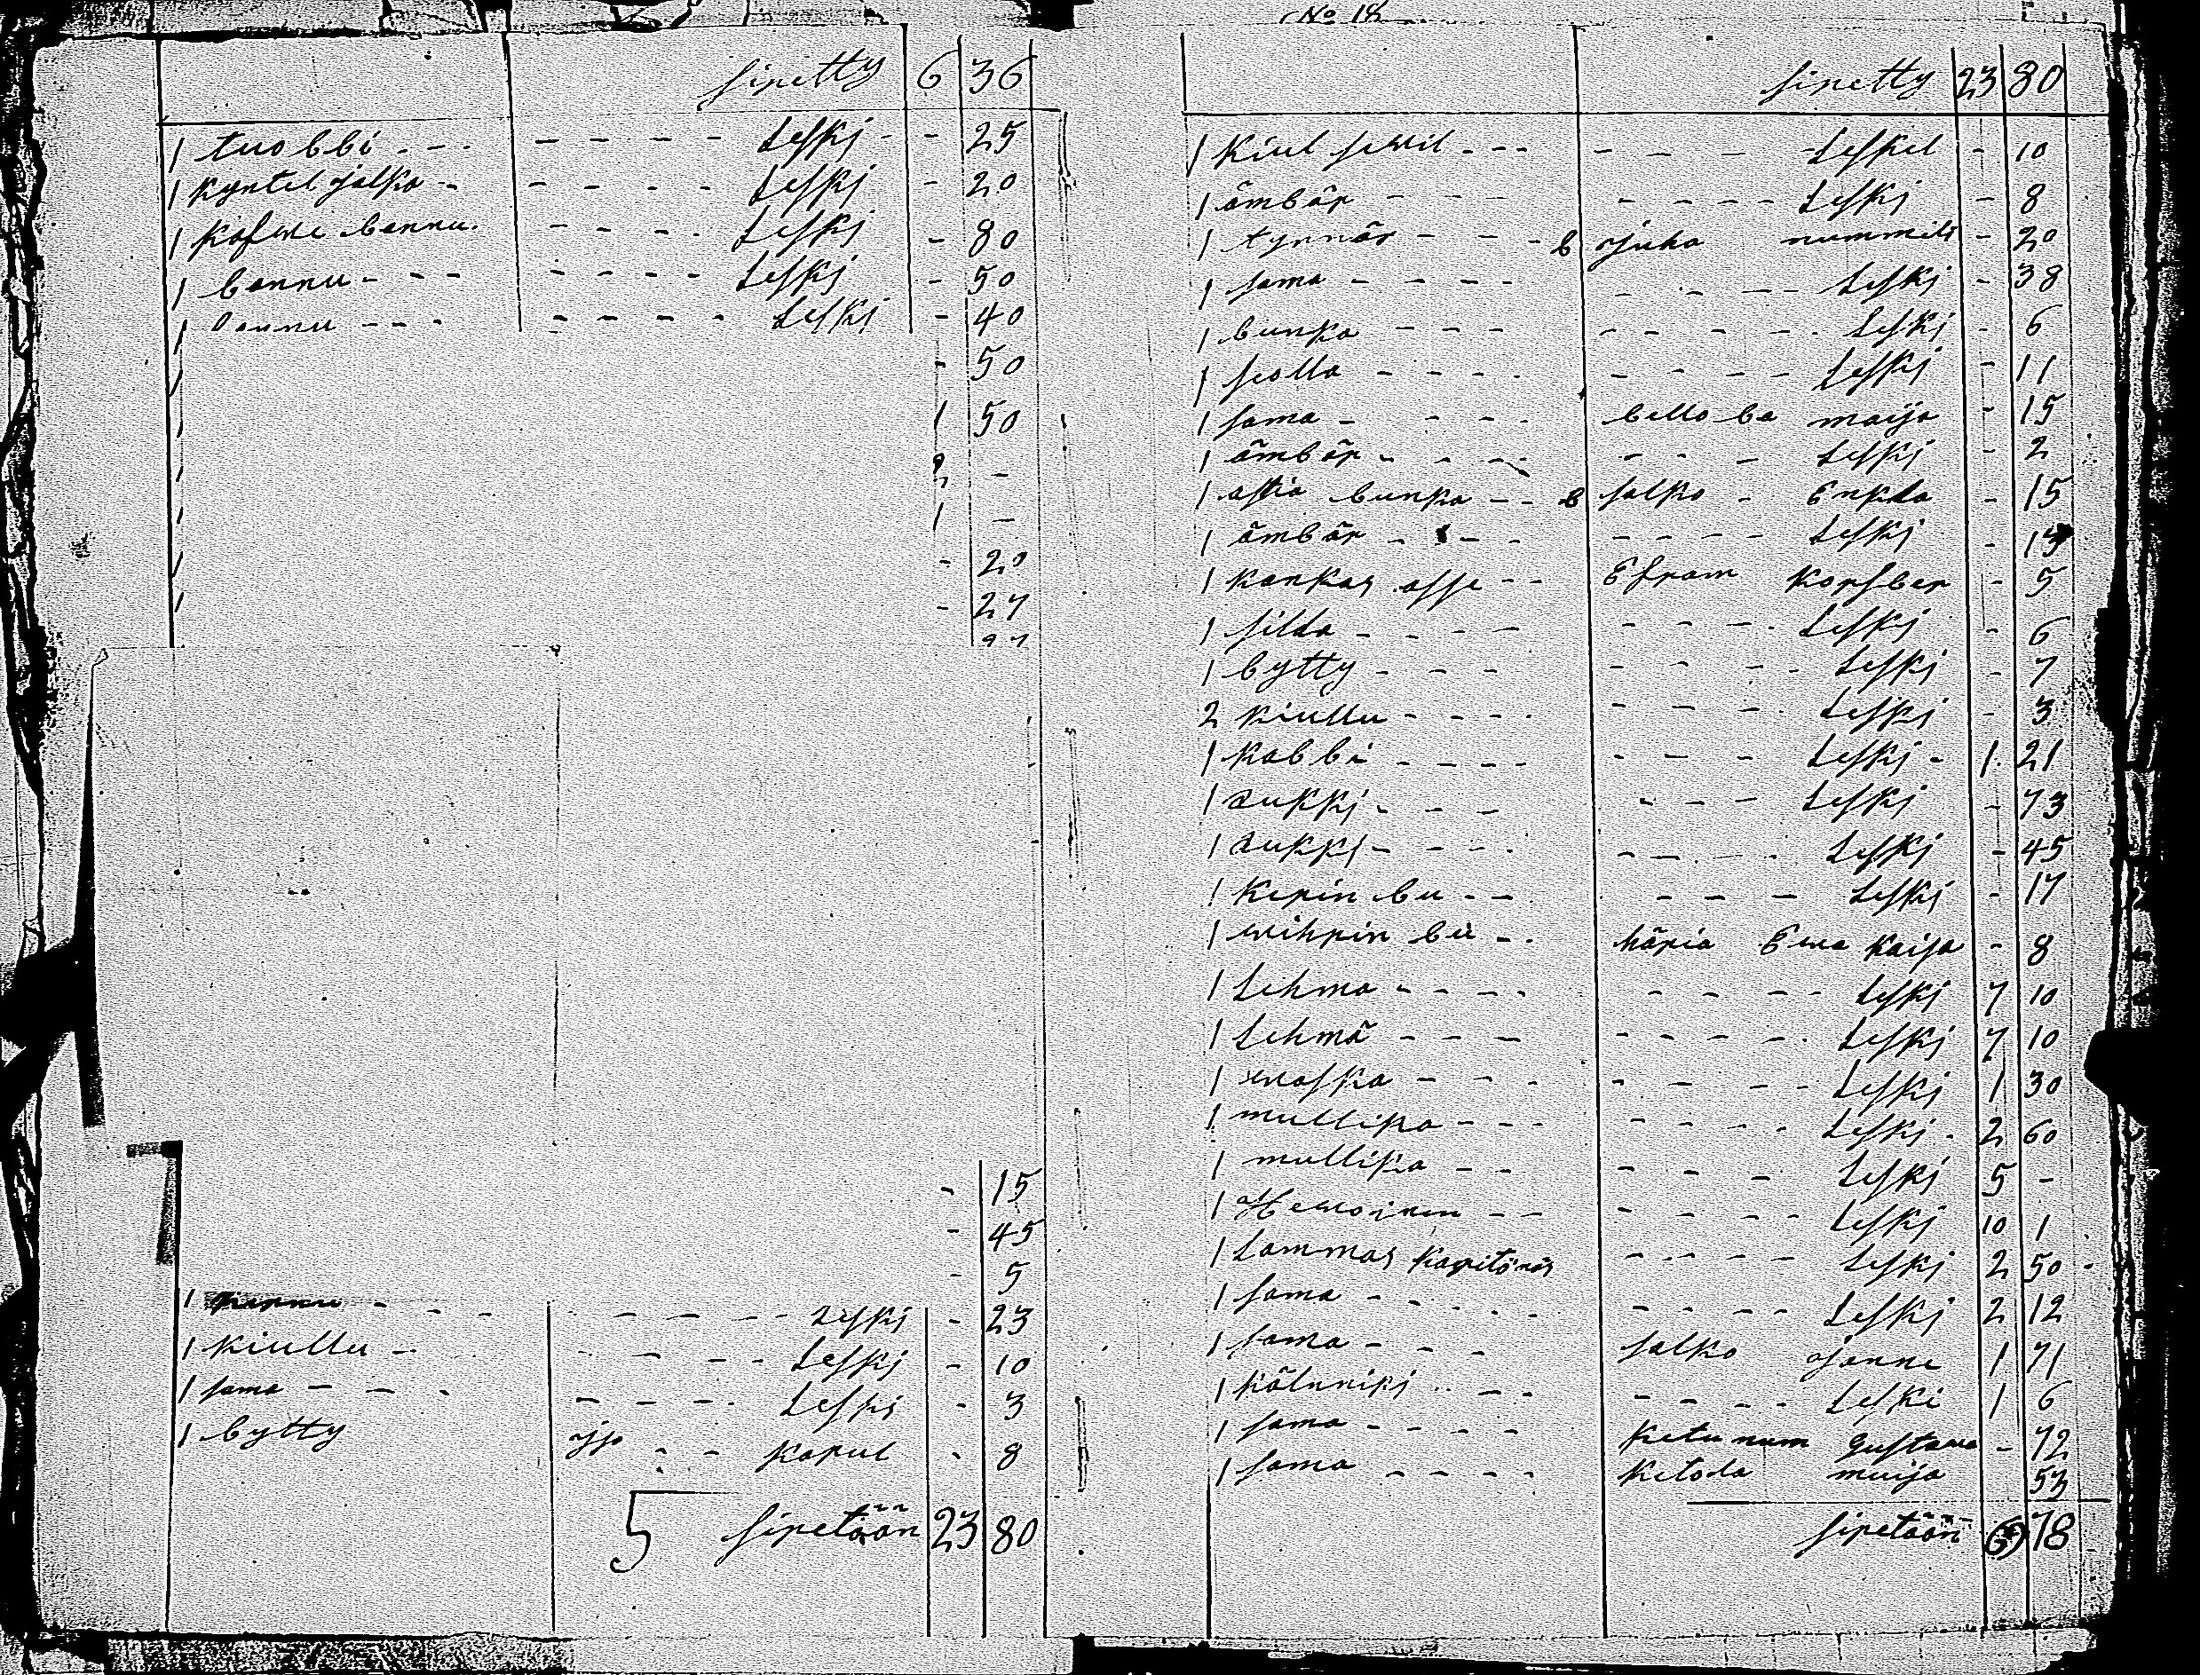 No 18
siretty 6 36
1 tuobbi - - - - - - - Leski - - 25
1 kyntel jalka - - - - - - Leski - 20
1 kafwe bannu - - - - Leski - 80
1 bannu - - - - - - - Leski - 50
1 bannu - - - - - - - - Leski - 40
1 - 50
1 1 50
1 2 -
1 1 -
1 - 20
1 - 27
- 15
- 45
- 5
1 - - - - - - - Leski - 23
1 kiullu - - - - - Leski - 10
1 sama - - - - - - - Leski - 3
1 bytty - - karul - 8
5 siretään 23 80
siretty 23 80
1 kiul - - - - - - - Leskel - 10
1 ämbär - - - - - - - - - Leski - 8
1 tynnär - - - b juha nummili - 20
1 sama - - - - - - - - Leski - 38
1 bunka - - - - - - - - - Leski - 6
1 seolla - - - - - - - - - Leski - 11
1 sama - - - - bello ba maija - 15
1 ämbär - - - - - - - Leski - 2
1 astia bunka - - b salko - Enkla - 15
1 ämbär - - - - - - - - Leski - 15
1 kankas asse - - Efram korsber - 5
1 silda - - - - - - - - Leski - 6
1 bytty - - - - - - - - Leski - 7
2 kiullu - - - - - - - - Leski - 3
1 kabbi - - - - - - - Leski - 1 21
1 rukki - - - - - - - Leski - 73
1 rukki - - - - - - - Leski - 45
1 kerin bu - - - - - Leski - 17
1 wihrin bu - - häria Ewa kaisa - 8
1 Lehma - - - - - - - - - Leski 7 10
1 Lehmä - - - - - - - - - Leski 7 10
1 waska - - - - - - - - - Leski 1 30
1 mullika - - - - - - - - Leski - 2 60
1 mullika - - - - - - - Leski 5 -
1 Hewoinen - - - - - - - Leski 10 1
1 Lammas karitönäs - - - - Leski 2 50
1 sama - - - - - - - - - Leski 2 12
1 sama - - - - salko janne 1 71
1 - - - - - - Leski 1 6
1 sama - - - - ketunum gustawa - 72
1 sama - - - - ketola muija 53
siretään 69 78